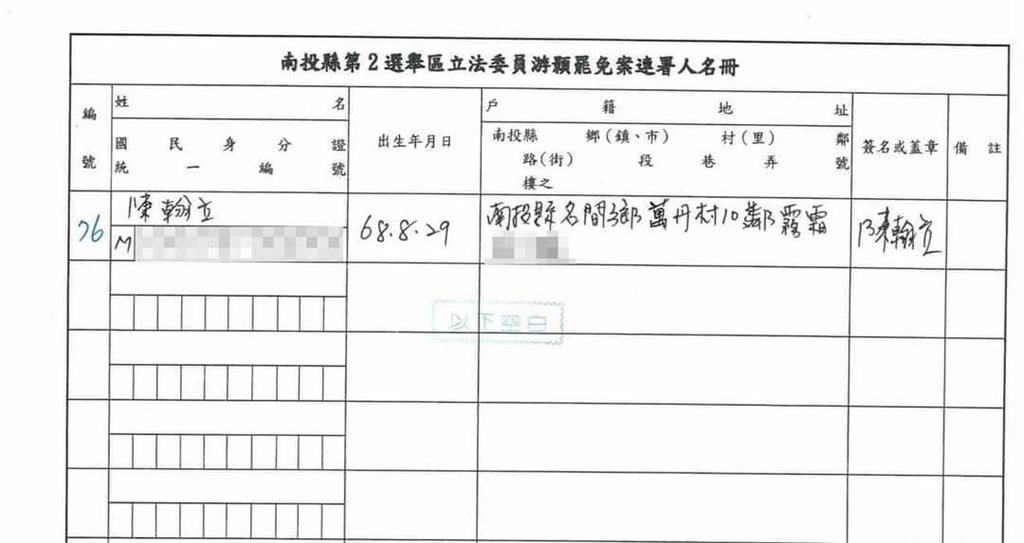 南投縣第2選舉區立法委員游顥罷免案連署人名冊
編號
姓名
國民身分證
統一編號
出生年月日
戶籍地址
南投縣 鄉(鎮、市) 村(里) 鄰
路(街) 段 巷 弄 號
樓之
簽名或蓋章
備註
76
陳翰立
M
68.8.29
南投縣名間鄉萬丹村10鄰霧霜
陳翰立
以下空白